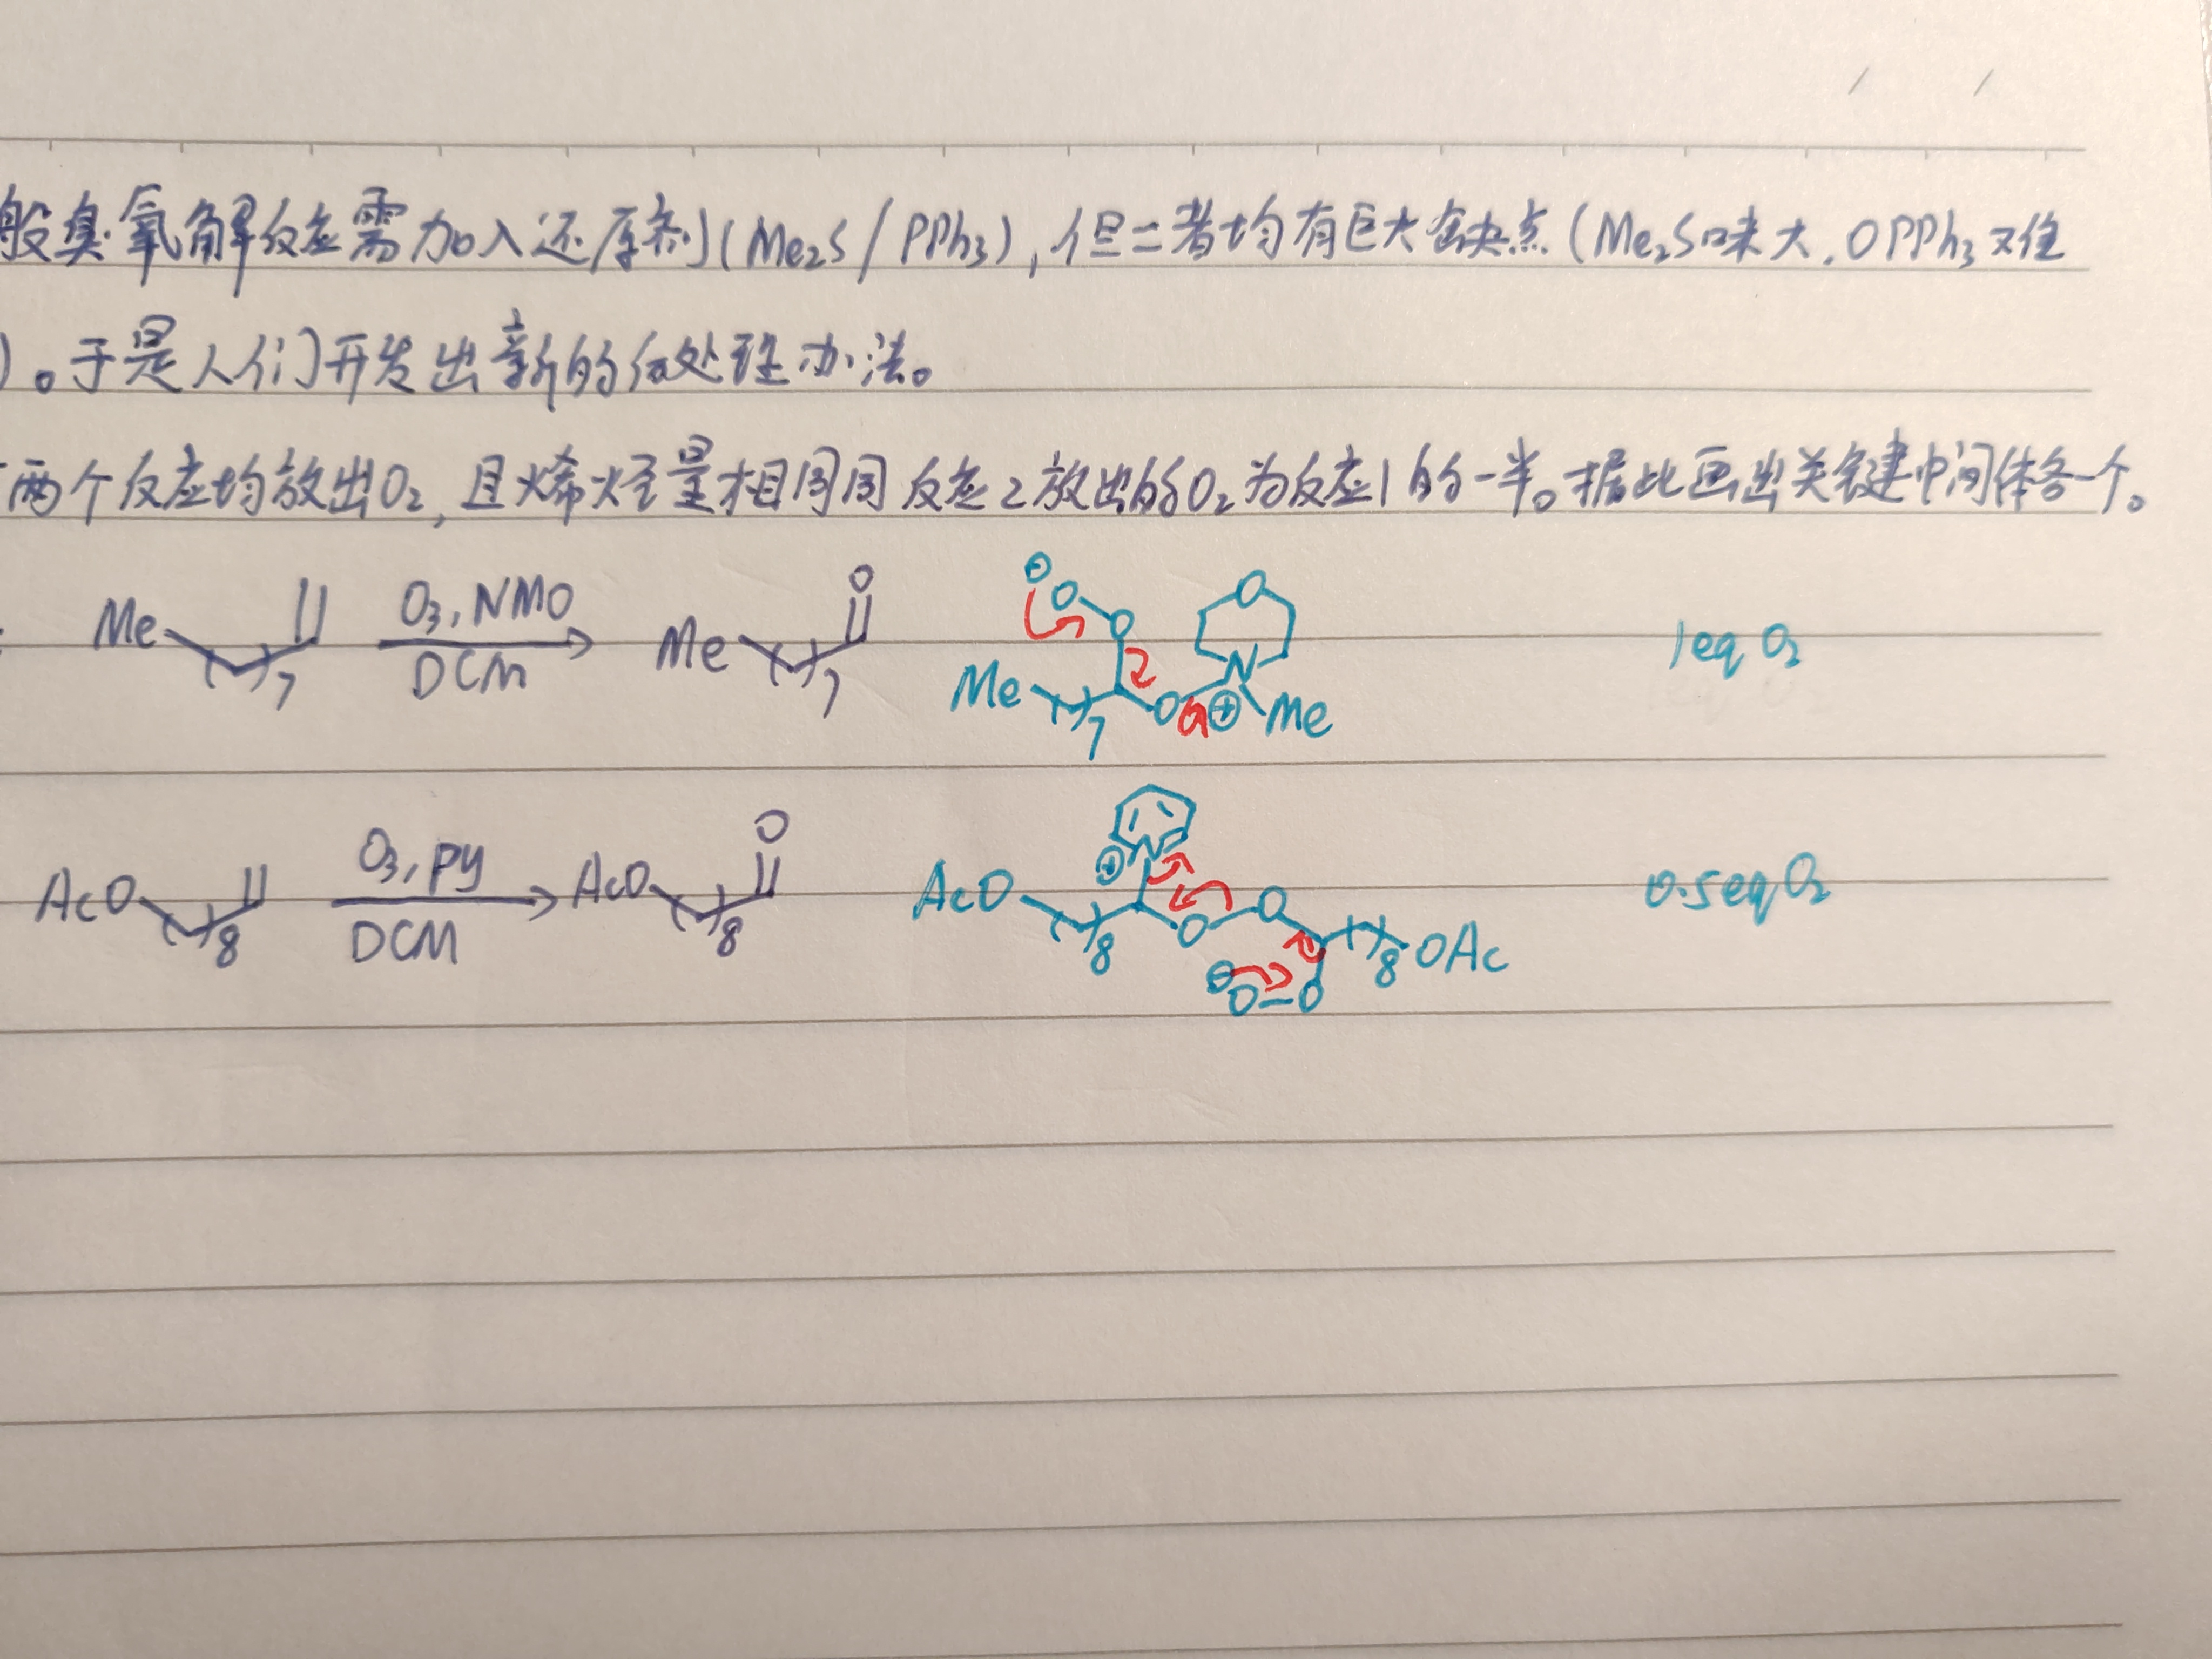 般臭氧解反应需加入还原剂(Me₂S/PPh₃),但二者均有巨大缺点(Me₂S味大,OPPh₃又难
)。于是人们开发出新的后处理办法。
两个反应均放出O₂,且烯烃量相同同反应2放出的O₂为反应1的一半。据此画出关键中间体各一个。
Me 7 O₃,NMO DCM Me 7 O ⊖ O O Me 7 O N ⊕ Me O 1eq O₂
AcO 8 O₃,py DCM AcO 8 O AcO 8 ⊕ N O O 8 OAc ⊖ O O 0.5eq O₂